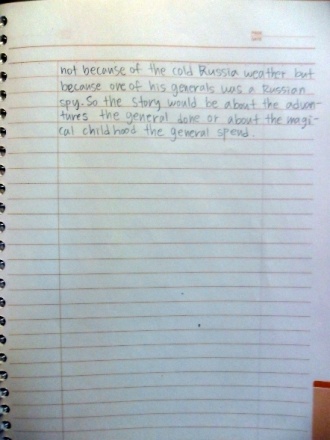 not because of the cold Russia weather but
because one of his generals was a Russian
spy. So the story would be about the adven-
tures the general done or about the magi-
cal childhood the general spend.